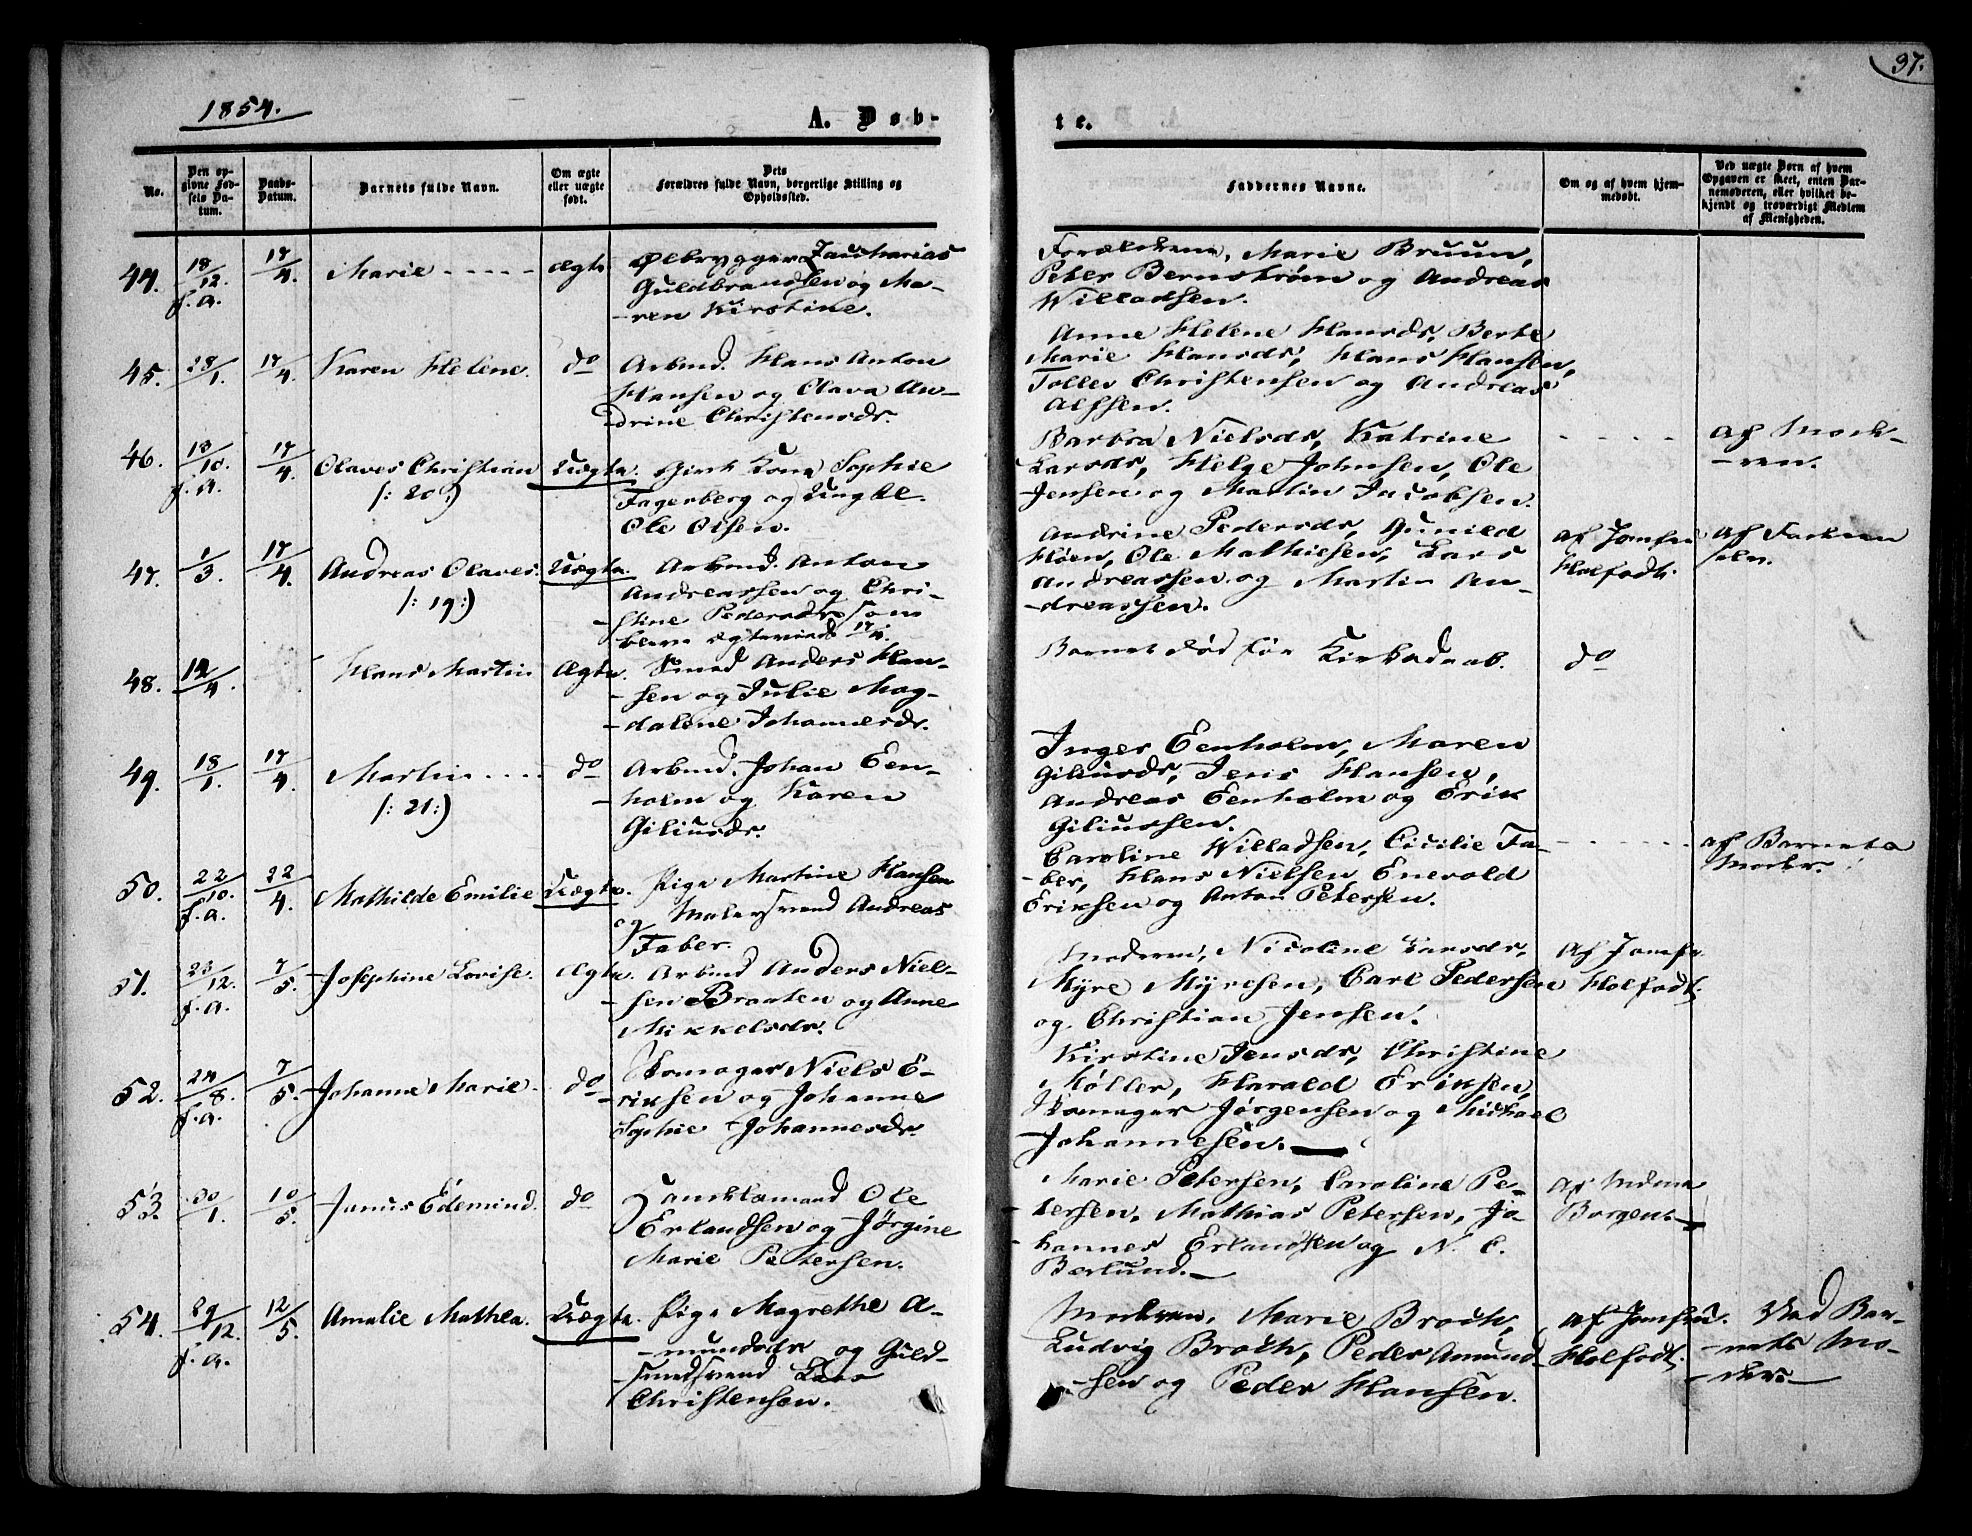 1854.
A. Døb-
te.
37.
No.
Den op-
givne Fød-
sels Da-
tum.
Daabs-
Datum.
Barnets fulde Navn.
Om ægte
eller uægte
født.
Dets
Forældres fulde Navn, borgerlige Stilling og
Opholdssted.
Faddernes Navne.
Om og af hvem hjem-
medøbt.
Ved uægte Børn af hvem
Opgaven er skeet, enten Bar-
nemoderen, eller hvilket be-
kjendt og troværdigt Medlem
af Menigheden.
44.
18/12.
f. a.
17/4.
Marie
ægte
Ølbrygger Zacharias
Guldbrandsen og Ma-
-ren Kirstine.
Forældrene, Marie Bruun,
Peter Bernstrøm og Andreas
Willadsen.
45.
28/1.
17/4.
Karen Helene.
do
Arbmd. Hans Anton
Hansen og Olava An-
drine Christensdr.
Anne Helene Hansdr, Berte
Marie Hansdr, Hans Hansen,
Toller Christensen og Andreas
Alfsen.
46.
13/10.
f. a.
17/4.
Olaves Christian
/: 20 :/
Uægte.
Gint Kone Sophie
Fagerberg og Ungkl.
Ole Olsen.
Barbra Nielsdr, Katrine
Larsdr, Helge Johnsen, Ole
Jensen og Martin Jacobsen.
af Mode-
-ren.
47.
1/3.
17/4.
Andreas Olaves.
/: 19 :/
Uægte.
Arbmd. Anton
Andreassen og Chri-
-stine Pedersdr som
bleve ægteviede 17/4.
Andrine Pedersdr, Gunild
Høen, Ole Mathiesen, Lars
Andreassen og Martin An-
-dreassen.
af Jomfru
Holfodt.
af Faderen
selv.
48.
12/4.
Hans Martin
Ægte.
Smed Anders Han-
-sen og Julie Mag-
-dalene Johannesdr.
Barnet død før Kirkedaab.
do
49.
18/1.
17/4.
Martin
/: 21 :/
do
Arbmd. Johan Een-
-holm og Karen
Giliusdr.
Inger Eenholm, Maren
Giliusdr, Jens Hansen,
Andreas Eenholm og Erik
Giliussen.
50.
22/10.
f. a.
22/4.
Mathilde Emilie
Uægte.
Pige Martine Hansen
og Malersvend Andreas
Faber.
Caroline Willadsen, Cicilie Fa-
-ber, Hans Nielsen Enevold
Eriksen og Anton Petersen.
af Barnets
Moder.
51.
23/12.
f. a.
7/5.
Josephine Lovise.
Ægte.
Arbmd Anders Niel-
-sen Braaten og Anne
Mikkelsdr.
Moderen, Nicoline Larsdr,
Myre Myresen, Carl Pedersen
og Christian Jensen.
af Jomfr.
Holfodt.
52.
24/8.
f. a.
7/5.
Johanne Marie.
do
Skomager Niels E-
-riksen og Johanne
Sophie Johannesdr.
Kirstine Jensdr, Christine
Køller, Harald Eriksen,
Skomager Jørgensen og Michael
Johannesen.
53.
30/1.
10/5.
Junus Edemind.
do
Samklamand Ole
Erlandsen og Jørgine
Marie Petersen.
Marie Petersen, Caroline Pe-
-tersen, Mathias Petersen, Jo-
-hannes Erlandsen og N. C.
Berlund.
af Mdme
Borgen.
54.
29/12.
f. a.
12/5.
Amalie Mathea.
Uægte.
Pige Magrethe A-
-mundsdr og Guld-
-smedsvend Lars
Christensen.
Moderen, Marie Brodt,
Ludvig Brodt, Peder Amund-
-sen og Peder Hansen.
af Jomfru.
Holfodt.
Ved Bar-
-nets Mo-
-der.